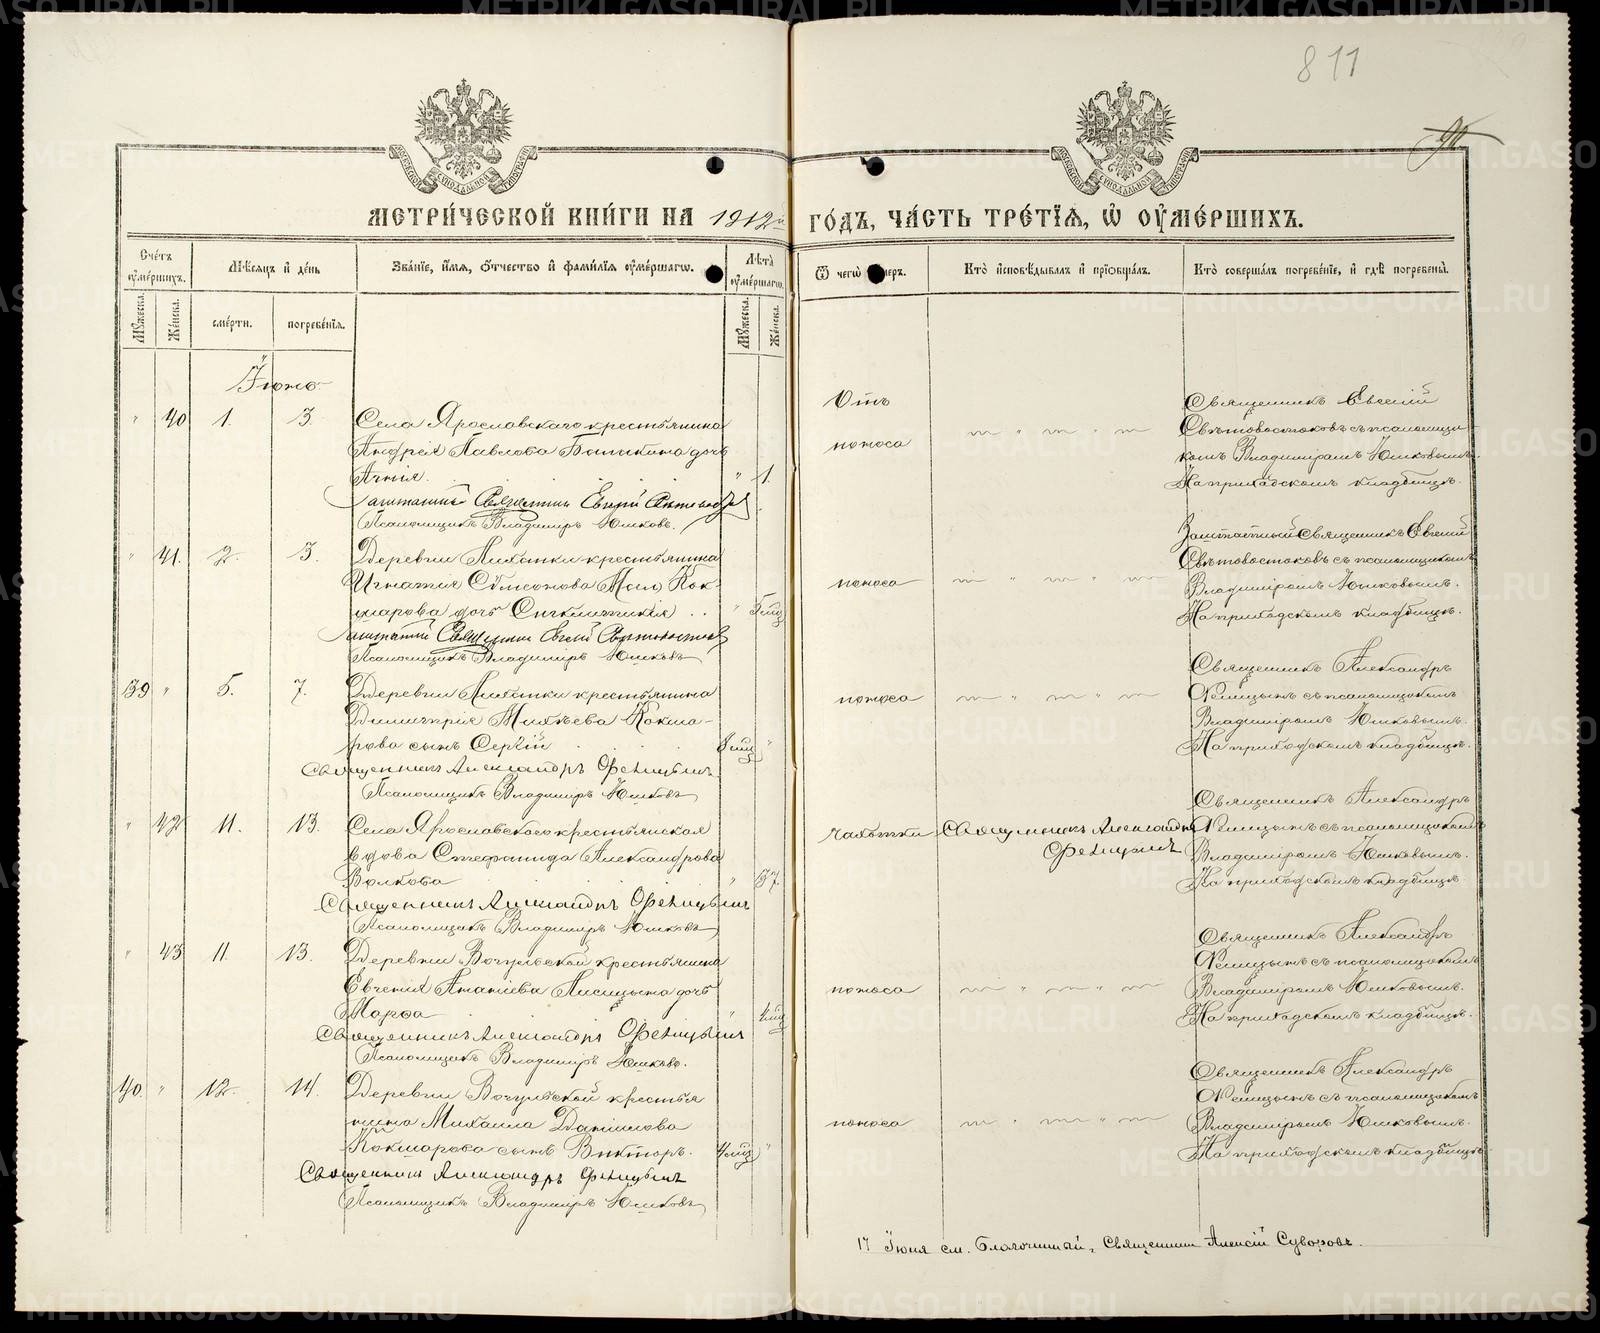 811
МОСКОВСКОЙ СИНОДАЛЬНОЙ ТИПОГРАФІИ
МОСКОВСКОЙ СИНОДАЛЬНОЙ ТИПОГРАФІИ
МЕТРИ́ЧЕСКОЙ КНИ́ГИ НА 1912й ГО́ДЪ, ЧА́СТЬ ТРЕ́ТІѦ, Ѡ ОУМЕ́РШИХЪ.
Сче́тъ оуме́ршихъ.
Мꙋжеска.
Же́нска.
Мѣ́сяцъ и де́нь
сме́рти.
погребе́нїѧ.
Зва́нїе, и́мѧ, ѻ́тчество и фами́лїѧ оуме́ршагѡ.
Лѣ́та оуме́ршагѡ.
Мꙋжеска.
Же́нска.
Кто̀ исповѣ́дывалъ и прїѡбща́лъ.
Кто̀ соверша́лъ погребе́нїе, и гдѣ̀ погребены̀.
Іюнь
" 40 1. 3. Села Ярославскаго крестьянина
Андрея Павлова Ботыкина дочь
Агнія. " 1.
Заштатный Священникъ Евгеній Свѣтовостоковъ
Псаломщикъ Владимиръ Юшковъ.
Отъ
поноса
Священникъ Евгеній
Свѣтовостоковъ съ псаломщи-
комъ Владимиромъ Юшковымъ.
На приходскомъ кладбищѣ.
" 41. 2. 3. Деревни Липотки крестьянина
Игнатія Кок-
шарова дочь Синклитикія " 5 мц
Заштатный Священникъ Евгеній Свѣтовостоковъ
Псаломщикъ Владимиръ Юшковъ
поноса
Заштатный Священникъ Евгеній
Свѣтовостоковъ съ псаломщикомъ
Владимиромъ Юшковымъ.
На приходскомъ кладбищѣ.
39 " 5. 7. Деревни Липотки крестьянина
Димитрія Михѣева Кокша-
рова сынъ Сергій "
Священникъ Александръ Фелицынъ
Псаломщикъ Владимиръ Юшковъ
поноса
Священникъ Александръ
Фелицынъ съ псаломщикомъ
Владимиромъ Юшковымъ.
На приходскомъ кладбищѣ.
" 42 11. 13. Села Ярославскаго крестьянская
вдова Стефанида Александрова
Волкова " 37.
Священникъ Александръ Фелицынъ
Псаломщикъ Владимиръ Юшковъ
чахотки
Священникъ Александръ
Фелицынъ
Священникъ Александръ
Фелицынъ съ псаломщикомъ
Владимиромъ Юшковымъ.
На приходскомъ кладбищѣ
" 43 11. 13. Деревни Вогульской крестьянина
Евгенія Ананіева Лисицына дочь
Марѳа " 4 мц
Священникъ Александръ Фелицынъ
Псаломщикъ Владимиръ Юшковъ.
поноса
Священникъ Александръ
Фелицынъ съ псаломщикомъ
Владимиромъ Юшковымъ.
На приходскомъ кладбищѣ.
40. " 12. 14. Деревни Вогульской крестья
нина Михаила Данилова
Кокшарова сынъ Викторъ. 4 мц "
Священникъ Александръ Фелицынъ
Псаломщикъ Владимиръ Юшковъ
поноса
Священникъ Александръ
Фелицынъ съ псаломщикомъ
Владимиромъ Юшковымъ.
На приходскомъ кладбищѣ
17 Іюня см. Благочинный, Священникъ Алексій Суворовъ.
METRIKI.GASO-URAL.RU